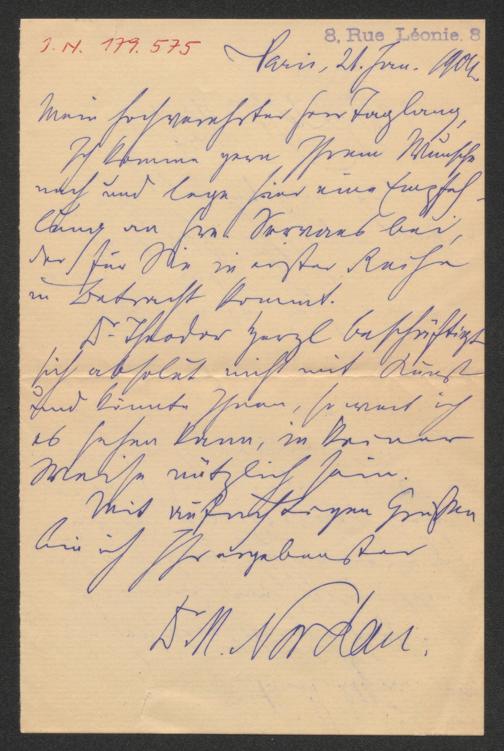 J. N. 179.575
8, Rue Léonie. 8
Paris, 21. Jan. 1904.
Mein hochverehrter Herr Taglang,
Ich komme gern Ihrem Wunsche
nach und lege hier eine Empfeh-
lung an Hrn. Servaes bei,
der für Sie in erster Reihe
in Betracht kommt.
Dr. Theodor Herzl beschäftigt
sich absolut nicht mit Kunst
und könnte Ihnen, so weit ich
es sehen kann, in keiner
Weise nützlich sein.
Mit aufrichtigen Grüßen
bin ich Ihr ergebenster
Dr. M. Nordau.